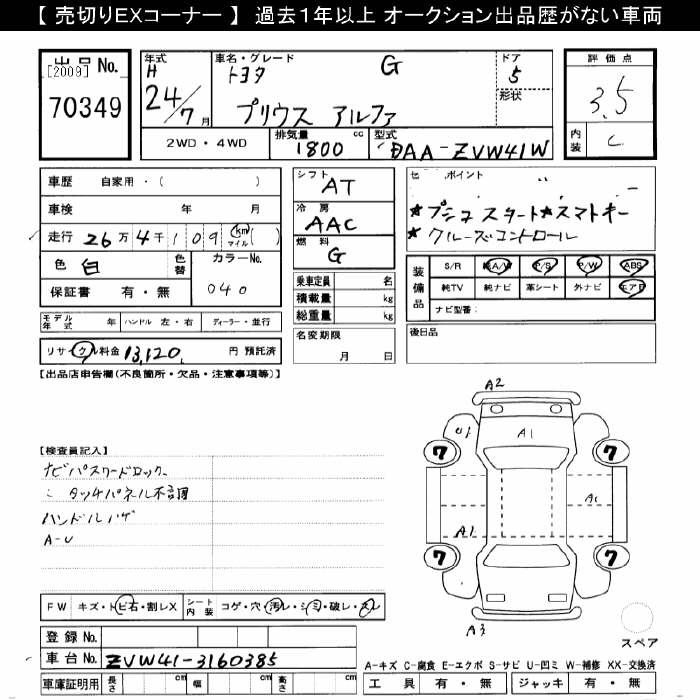 【 売切りEXコーナー 】 過去1年以上 オークション出品歴がない車両
出品 No.
[2009]
70349
年式 H 24/7 月
車名・グレード
トヨタ G
プリウス アルファ
ドア 5
形状
評価点 3.5
内装 C
2WD・4WD
排気量 1800 cc
型式 DAA-ZVW41W
車歴 自家用・( )
車検 年 月
走行 26万4千109 km マイル ( )
色 白 色替 カラーNo. 040
保証書 有・無
シフト AT
冷房 AAC
燃料 G
乗車定員 名
積載量 kg
総重量 kg
名変期限 月 日
ポイント
★プッシュスタート★スマトキー
★クルーズコントロール
装備品
S/R 純A/W P/S P/W ABS
純TV 純ナビ 革シート 外ナビ エアB
ナビ型番:
後日品
モデル年式 年 ハンドル 左・右 ディーラー・並行
リサイクル料金 13,120 円 預託済
【出品店申告欄(不良箇所・欠品・注意事項等)】
【検査員記入】
ナビパスワードロック
タッチパネル不調
ハンドルハゲ
A-U
A2
U1 A1
7 7
A1
7 7
A3
スペア
FW キズ・トビ石・割レX シート内装 コゲ・穴・汚レ・シミ・破レ・スレ
登録 No.
車台 No. ZVW41-3160385
車庫証明用 長さ cm 幅 cm 高さ cm
A-キズ C-腐食 E-エクボ S-サビ U-凹ミ W-補修 XX-交換済
工具 有・無 ジャッキ 有・無